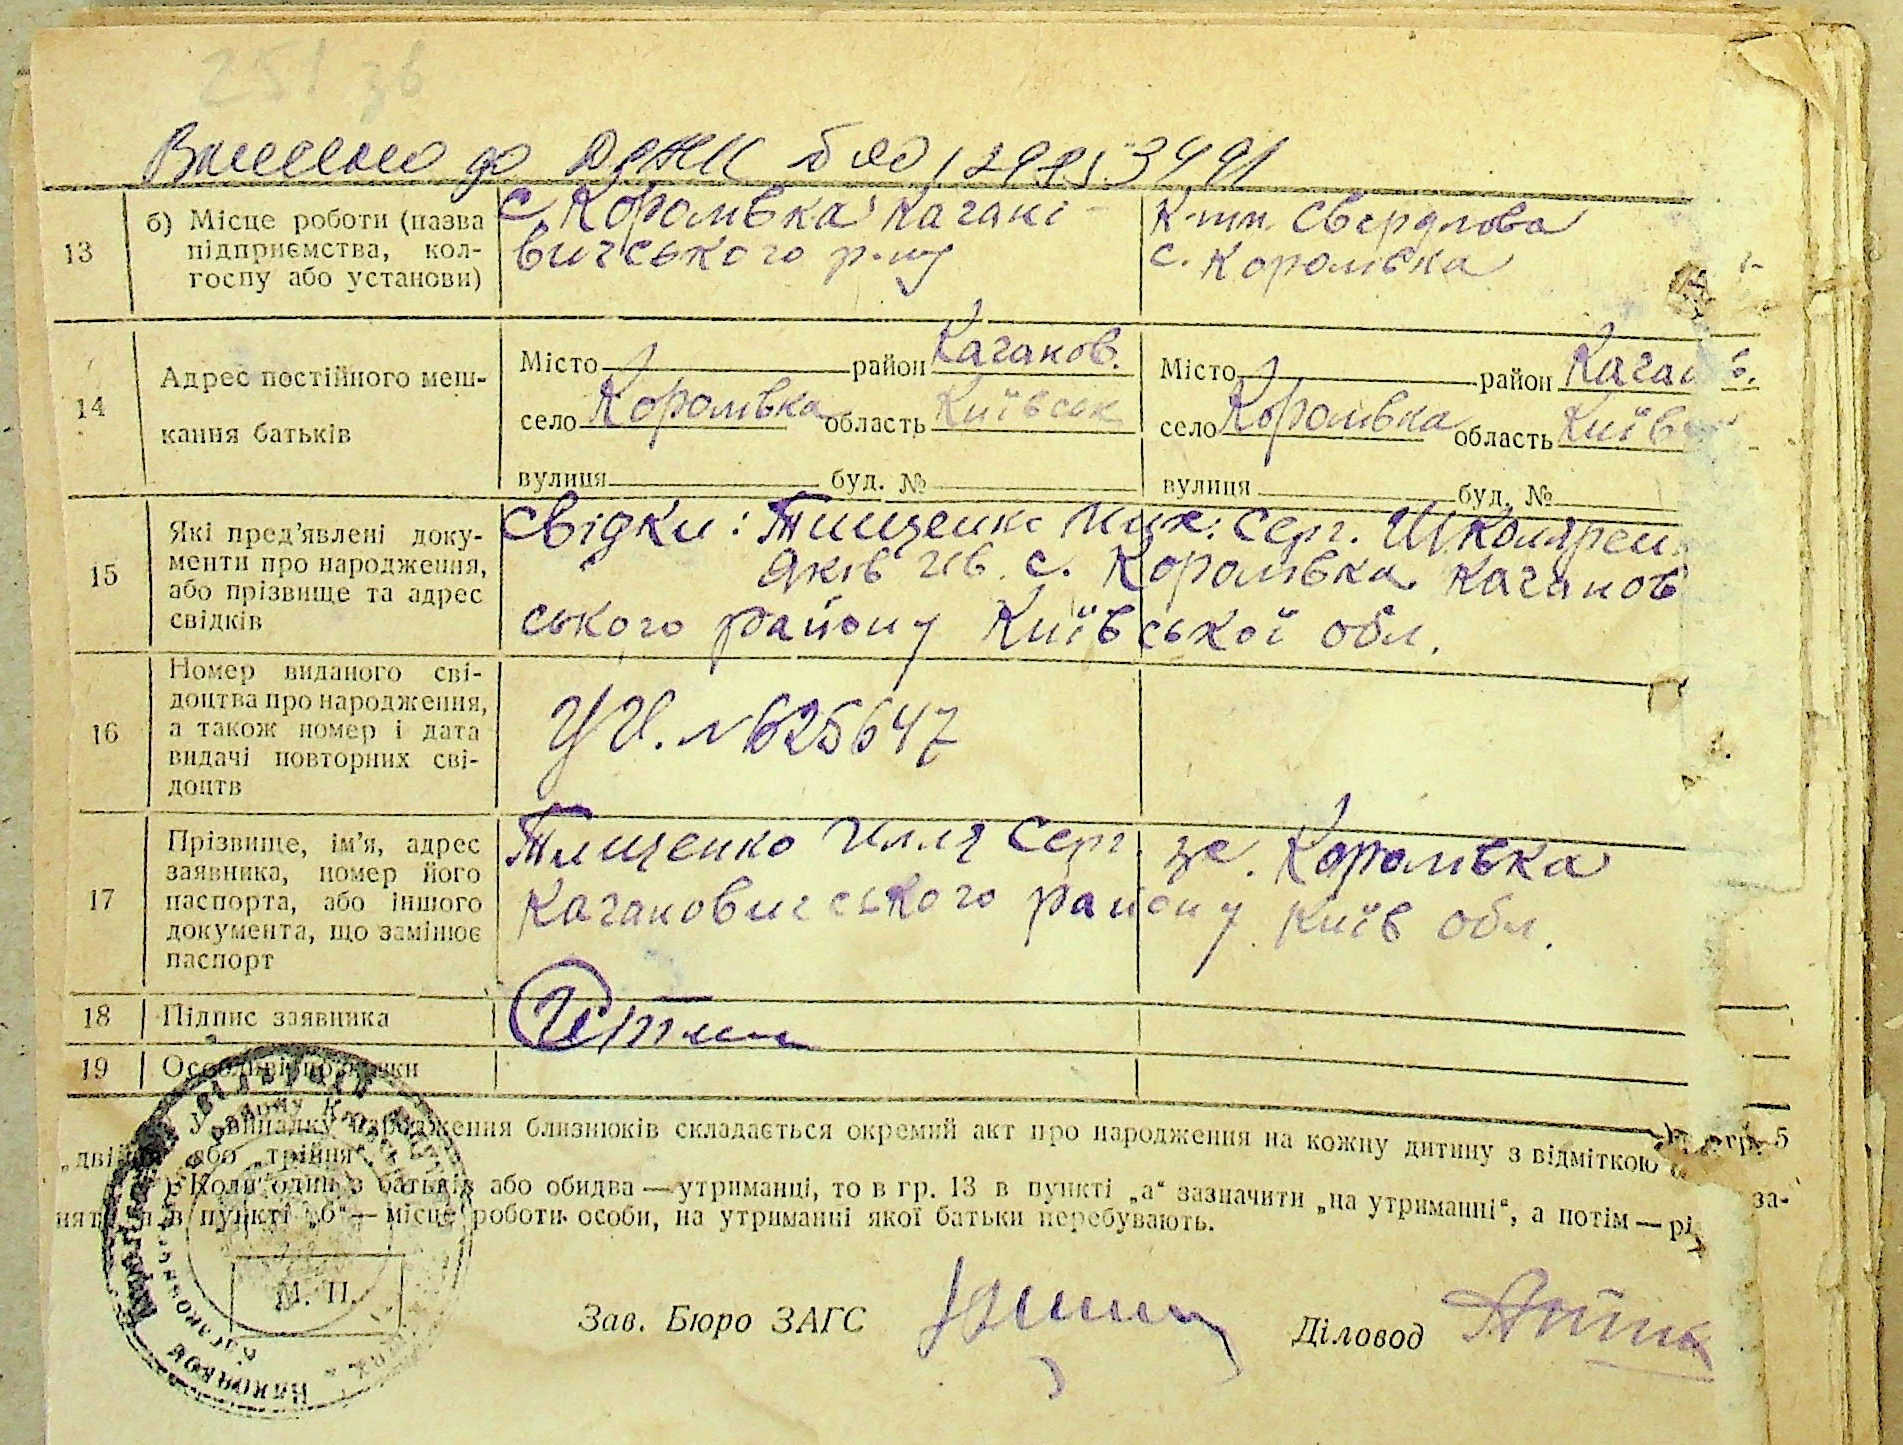 251 зв
Внесено до ДРАЦС
13
б) Місце роботи (назва
підприємства, кол-
госпу або установи)
с. Королівка Кагані-
вичського р-ну
к-т ім. Свердлова
с. Королівка
14
Адрес постійного меш-
кання батьків
Місто район Каганов.
село Королівка область Київськ
вулиця буд. №
Місто район Каган в.
село Королівка область Київ
вулиця буд. №
15
Які пред'явлені доку-
менти про народження,
або прізвище та адрес
свідків
Свідки: Тищенко Мих. Серг. Школярен
Яків Ів. с. Королівка Каганов
ського району Київської обл.
16
Номер виданого сві-
доцтва про народження,
а також номер і дата
видачі повторних сві-
доцтв
№ 625647
17
Прізвище, ім'я, адрес
заявника, номер його
паспорта, або іншого
документа, що замінює
паспорт
Тищенко Илля Серг. Королівка
Кагановичського району Київ обл.
18
Підпис заявника
19
Особливі
У випадку народження близнюків складається окремий акт про народження на кожну дитину з відміткою гр. 5
або „трійня“.
Коли один з батьків або обидва — утриманці, то в гр. 13 в пункті „а“ зазначити „на утриманні“, а потім — рі за-
в пункті „б“ — місце роботи особи, на утриманні якої батьки перебувають.
М. П.
Зав. Бюро ЗАГС
Діловод